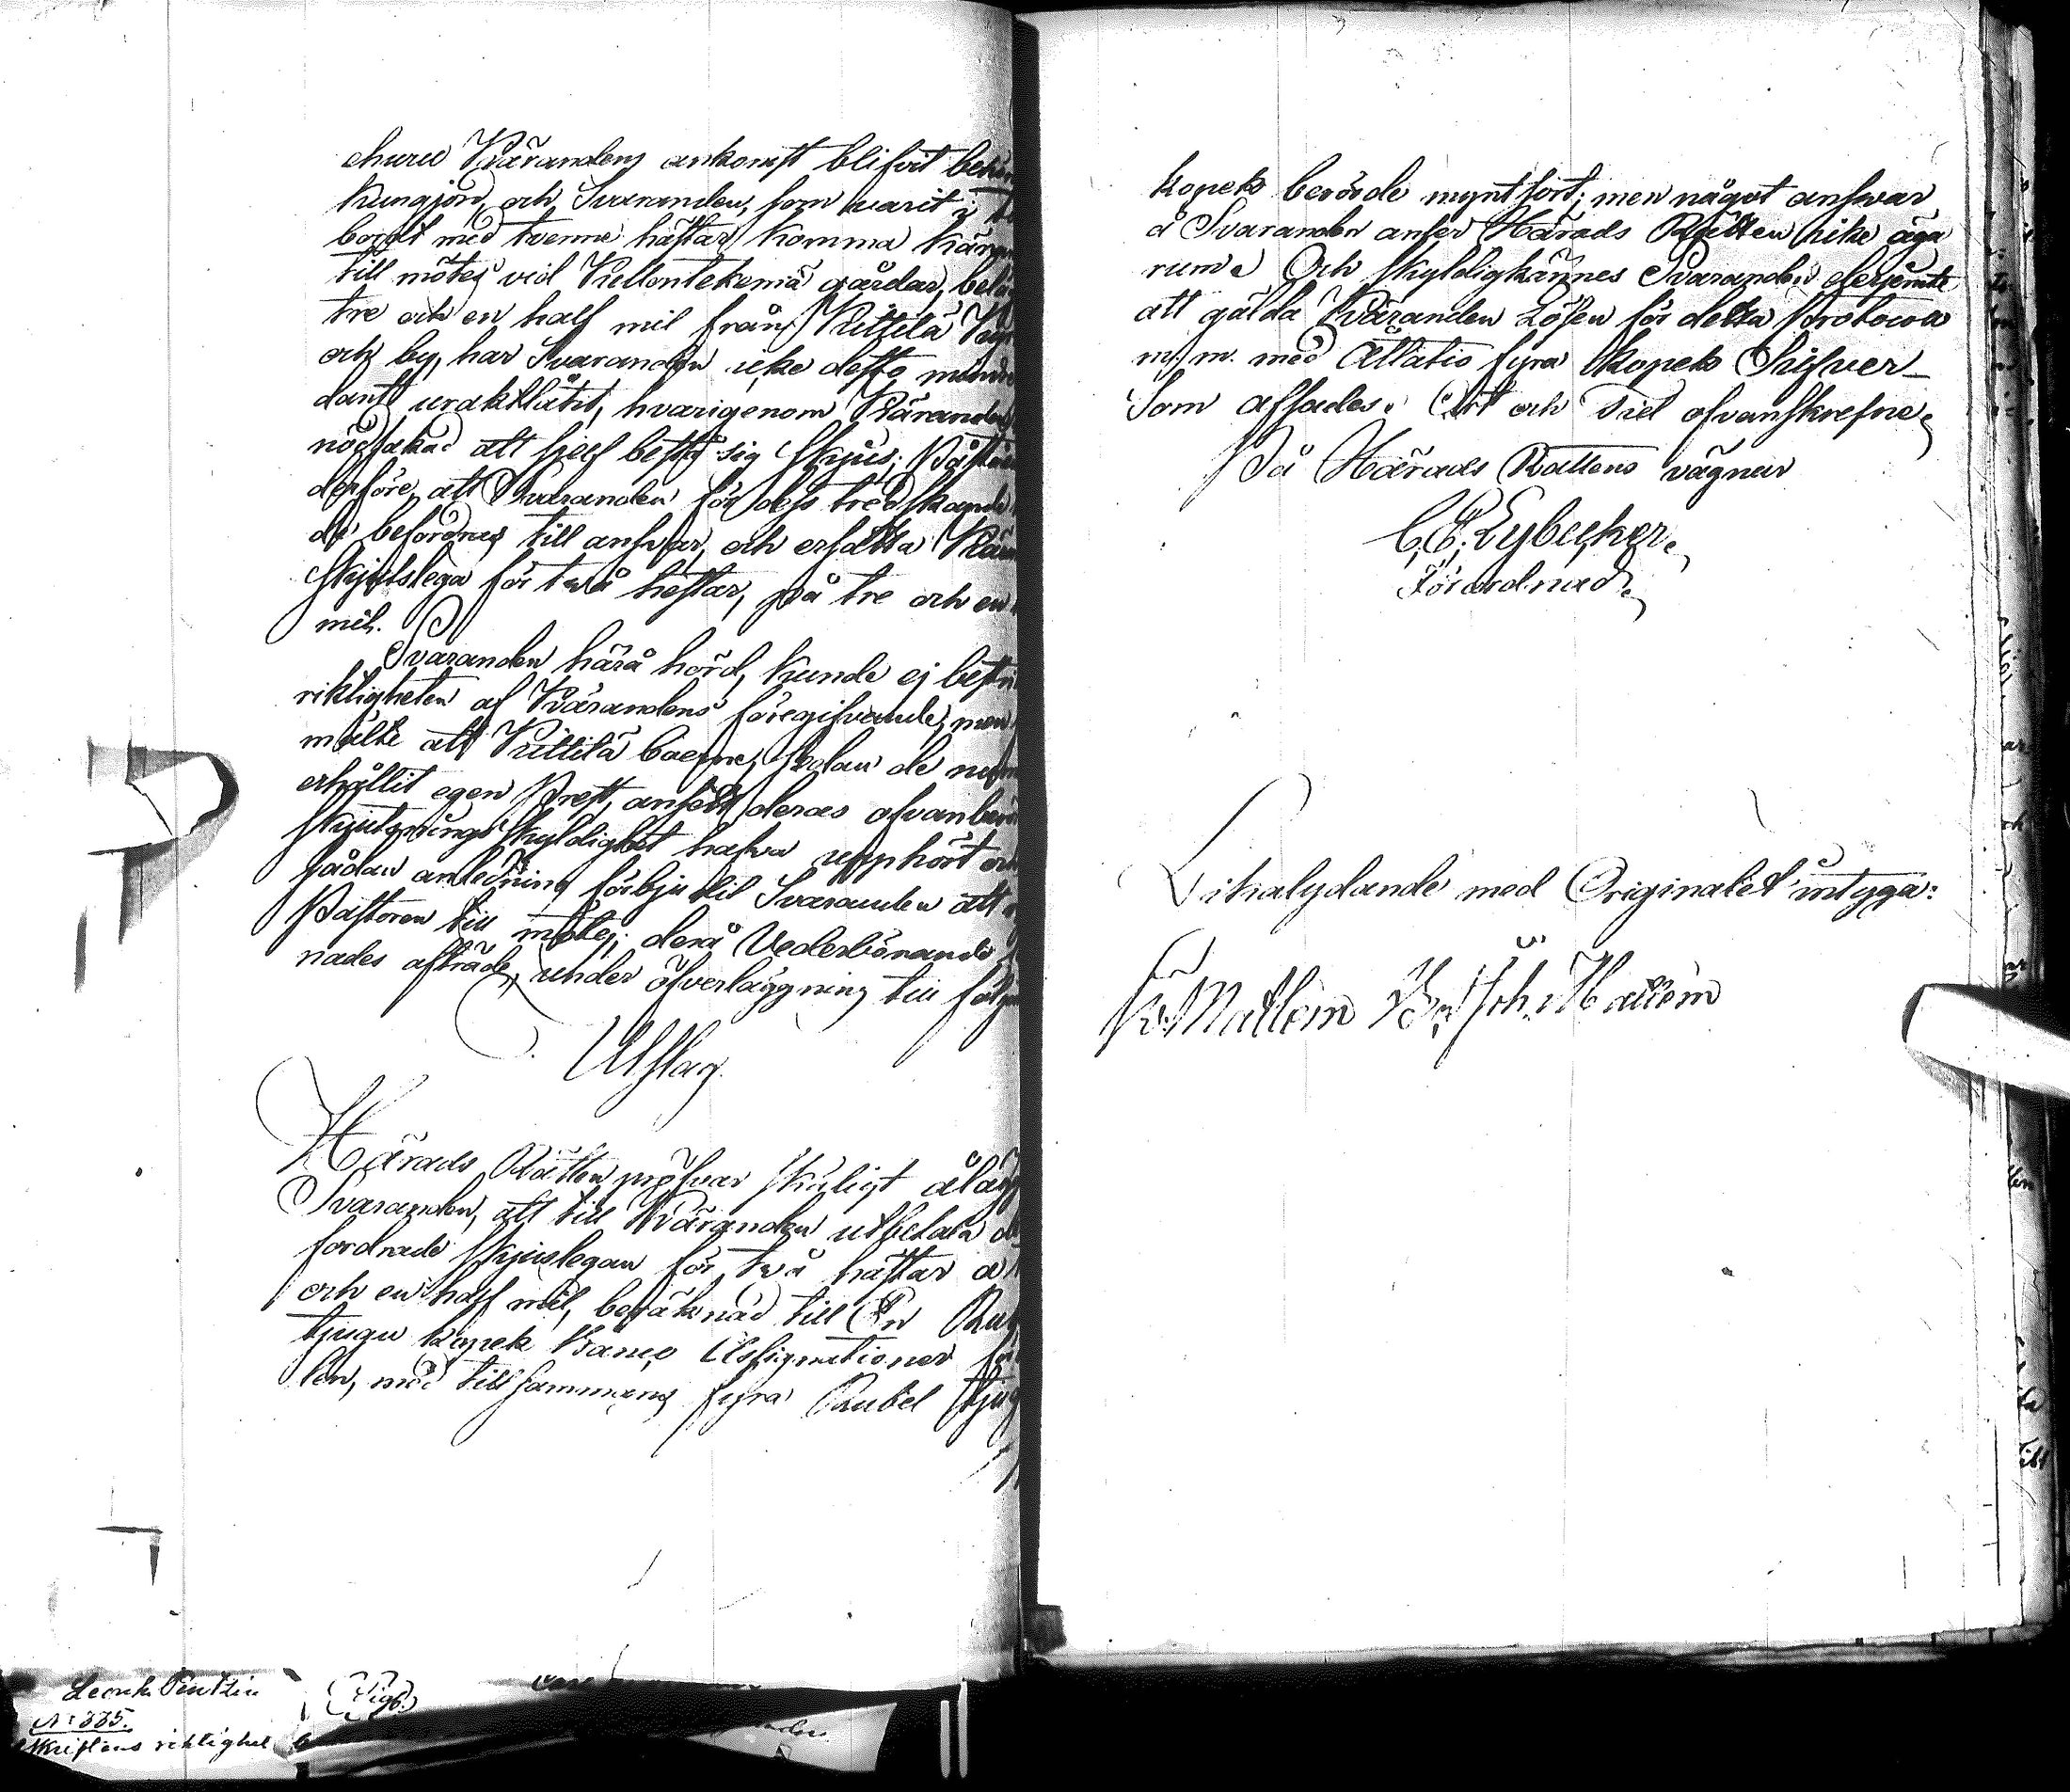 ehuru Kärandens ankomst blifvit behör
kungjord, och Svaranden, som varit i
bordt med tvenne hästar komma Käran
till mötes vid Kellontekemä gårdar, belä
tre och en half mil från Kittilä
och by, har Svaranden icke desto mindre
dant uraktlåtit, hvarigenom Käranden
nödsakad att sjelf bestå sig skjus; Påstå
derföre, att Svaranden för dess tredskande
de befordras till answar, och ersätta Kär
skjutslega för twå hestar, på tre och en
mil.
Svaranden härå hörd, kunde ej bestri
riktigheten af Kärandens föregifvande, men
mälte att Kittilä boerne, sedan de
erhållit egen Prest, ansedt deras ofvanberö
skjutsningsskyldighet hafva upphört och
sådan anledning förbjudit Svaranden att
Pastoren till mötes; derå Vederbörande
nades afträde, under öfverläggning till följ
Utslag.
Härads Rätten pröfvar skäligt ålägg
Svaranden, att till Käranden utbetala de
fordrade skjuslegan för twå hästar å
och en half mil, beräknad till En Rub
tjugu kopek Banco Assignationer för
len, med tillsammans fyra Rubel tjug
kopek berörde myntsort; men något answar
å Svaranden anser Härads Rätten icke äga
rum. Och skyldigkännes Svaranden derjemte
att gälda Käranden Lösen för detta Protocoll
m. m. med Åttatio fyra kopek Silfver_
Som afsades. Ort och Tid ofvanskrefne.
På Härads Rättens vägnar
C. E. Lybecker.
Förordnad.
Likalydande med Originalet intyga:
Mattem Joh. Mattem
Leonh.
No 335.
skriftens riktighet